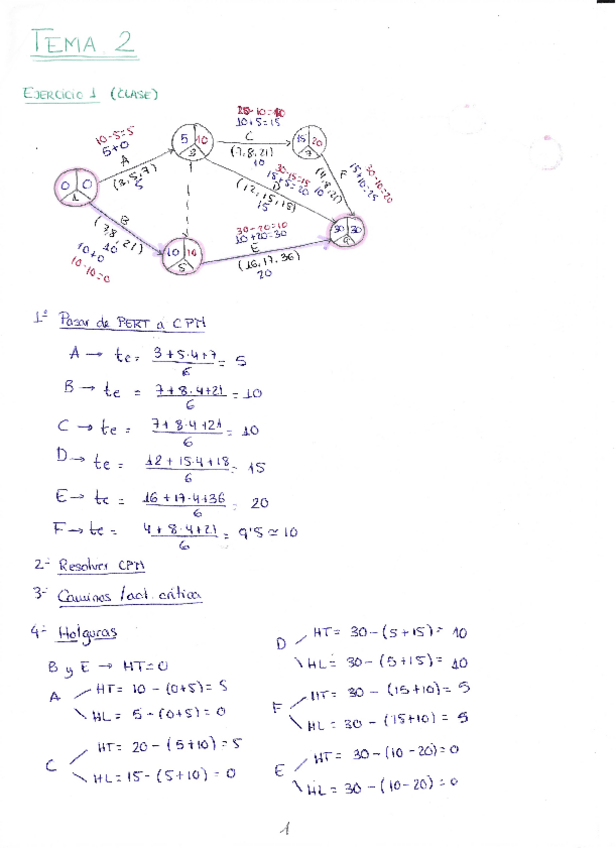 TEMA 2
EJERCICIO 1 (CLASE)
10-5=5
5+0
A
(3,5,7)
5
5 10
3
10+5=15
C
(7,8,21)
10
15 20
7
30-10=20
15+10=25
F
(4,8,21)
10
0 0
1
30-15=15
15+5=20
D
(12,15,18)
15
B
(7,8,21)
10
10+0
10-10=0
10 10
5
30-20=10
10+20=30
E
(16,17,36)
20
30 30
9
1ª Pasar de PERT a CPM
A → te = 3+5·4+7 / 6 = 5
B → te = 7+8·4+21 / 6 = 10
C → te = 7+8·4+21 / 6 = 10
D → te = 12+15·4+18 / 6 = 15
E → te = 16+17·4+36 / 6 = 20
F → te = 4+8·4+21 / 6 = 9'5 ≃ 10
2- Resolver CPM
3- Caminos /act. crítica
4- Holguras
B y E → HT=0
A HT= 10-(0+5)= 5
HL= 5-(0+5)= 0
C HT= 20-(5+10)=5
HL= 15-(5+10)= 0
D HT= 30-(5+15)= 10
HL= 30-(5+15)= 10
F HT= 30-(15+10)= 5
HL= 30-(15+10)= 5
E HT= 30-(10-20)=0
HL= 30-(10-20)=0
1